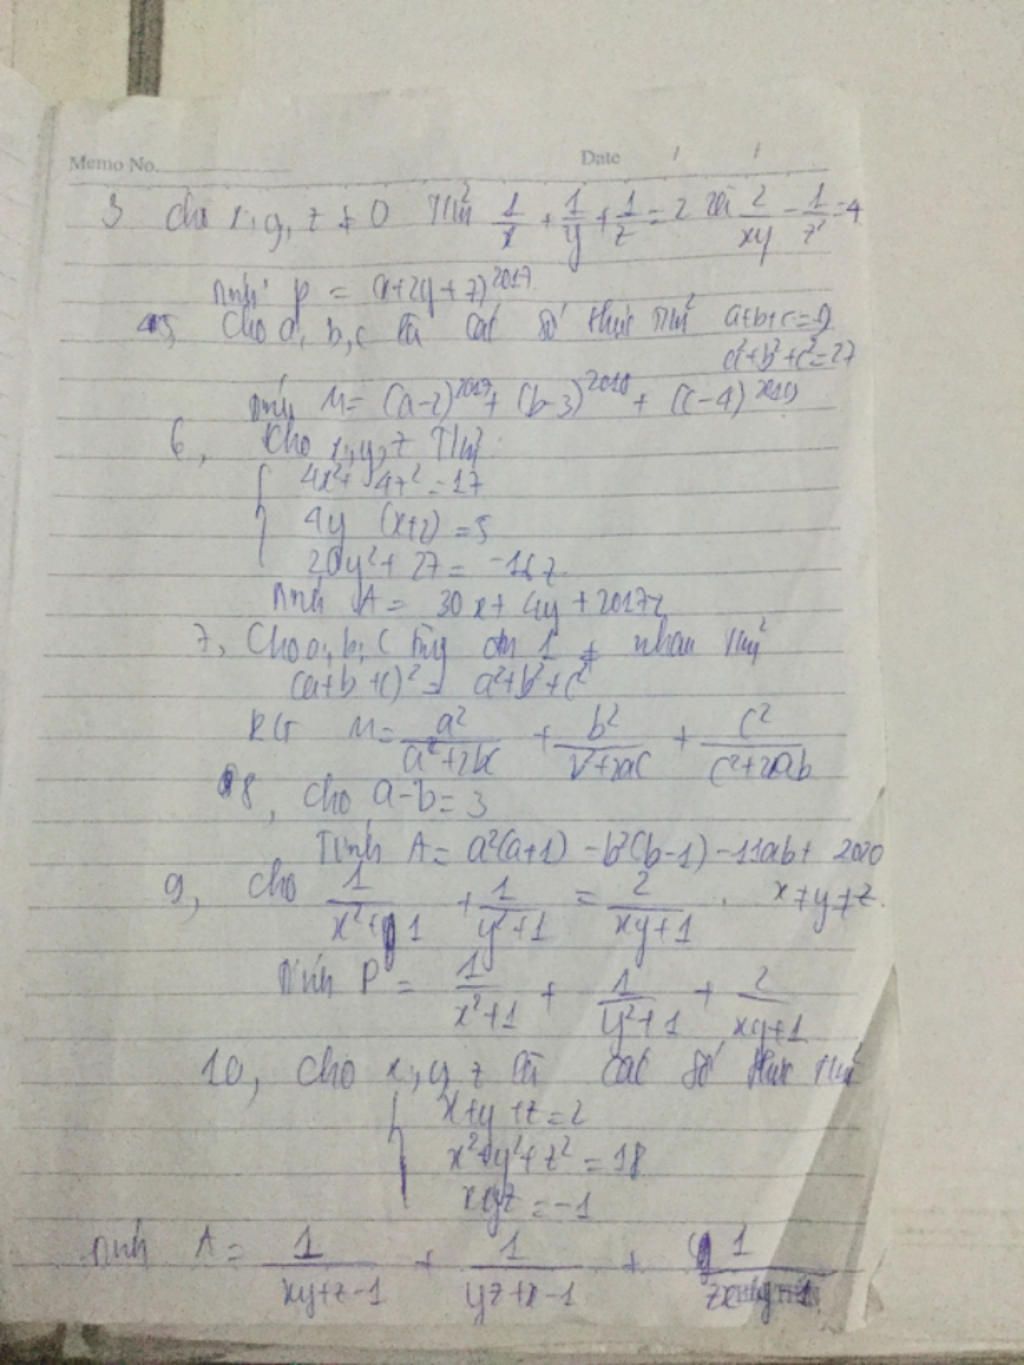 Memo No. Date / /
3 Cho x, y, z ≠ 0 Tm² 1/x + 1/y + 1/z = 2 và 2/xy - 1/z² = 4
Tính P = (x+2y+z)^2017
5, Cho a, b, c là các số thực Tm² a+b+c=9
a²+b²+c²=27
Tính M = (a-2)^2017 + (b-3)^2018 + (c-4)^2019
6, Cho x, y, z Tm²:
4x²+ 4z² = 17
4y (x+z) = 5
20y² + 27 = -16z
Tính A = 30x + 4y + 2017z
7, Cho a, b, c từng đôi 1 ≠ nhau Tm²
(a+b+c)² = a²+b²+c²
RG M = a²/(a²+2bc) + b²/(b²+2ac) + c²/(c²+2ab)
8, Cho a-b = 3
Tính A = a²(a+1) - b²(b-1) - 11ab + 2020
9, Cho 1/(x²+1) + 1/(y²+1) = 2/(xy+1) . x≠y≠z.
Tính P = 1/(x²+1) + 1/(y²+1) + 2/(xy+1)
10, Cho x, y, z là các số thực Tm²
x+y+z=2
x²+y²+z² = 18
xyz = -1
Tính A = 1/(xy+z-1) + 1/(yz+x-1) + 1/(zx+y-1)